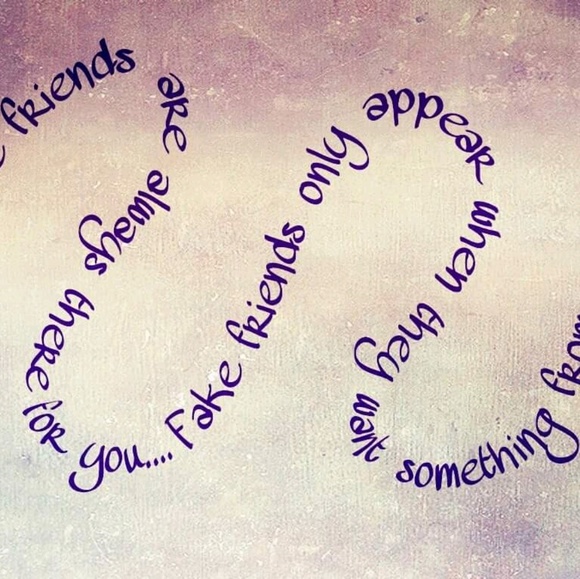 friends are always there for you.... Fake friends only appear when they want something from